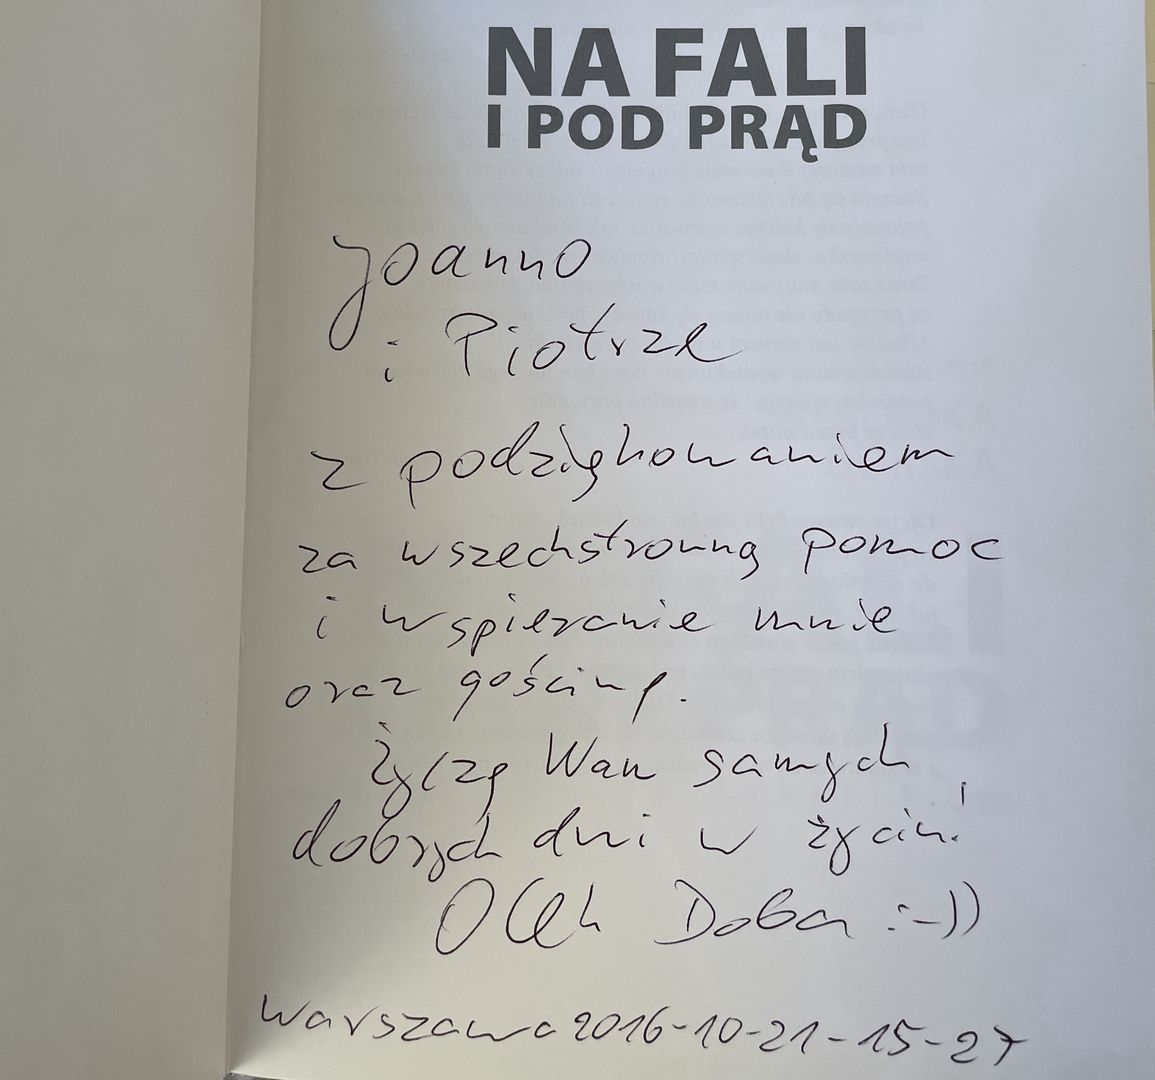 NA FALI
I POD PRĄD
Joanno
i Piotrze
z podziękowaniem
za wszechstronną pomoc
i wspieranie mnie
oraz gościnę.
Życzę Wam samych
dobrych dni w życiu!
Olek Doba :-))
Warszawa 2016-10-21-15-27